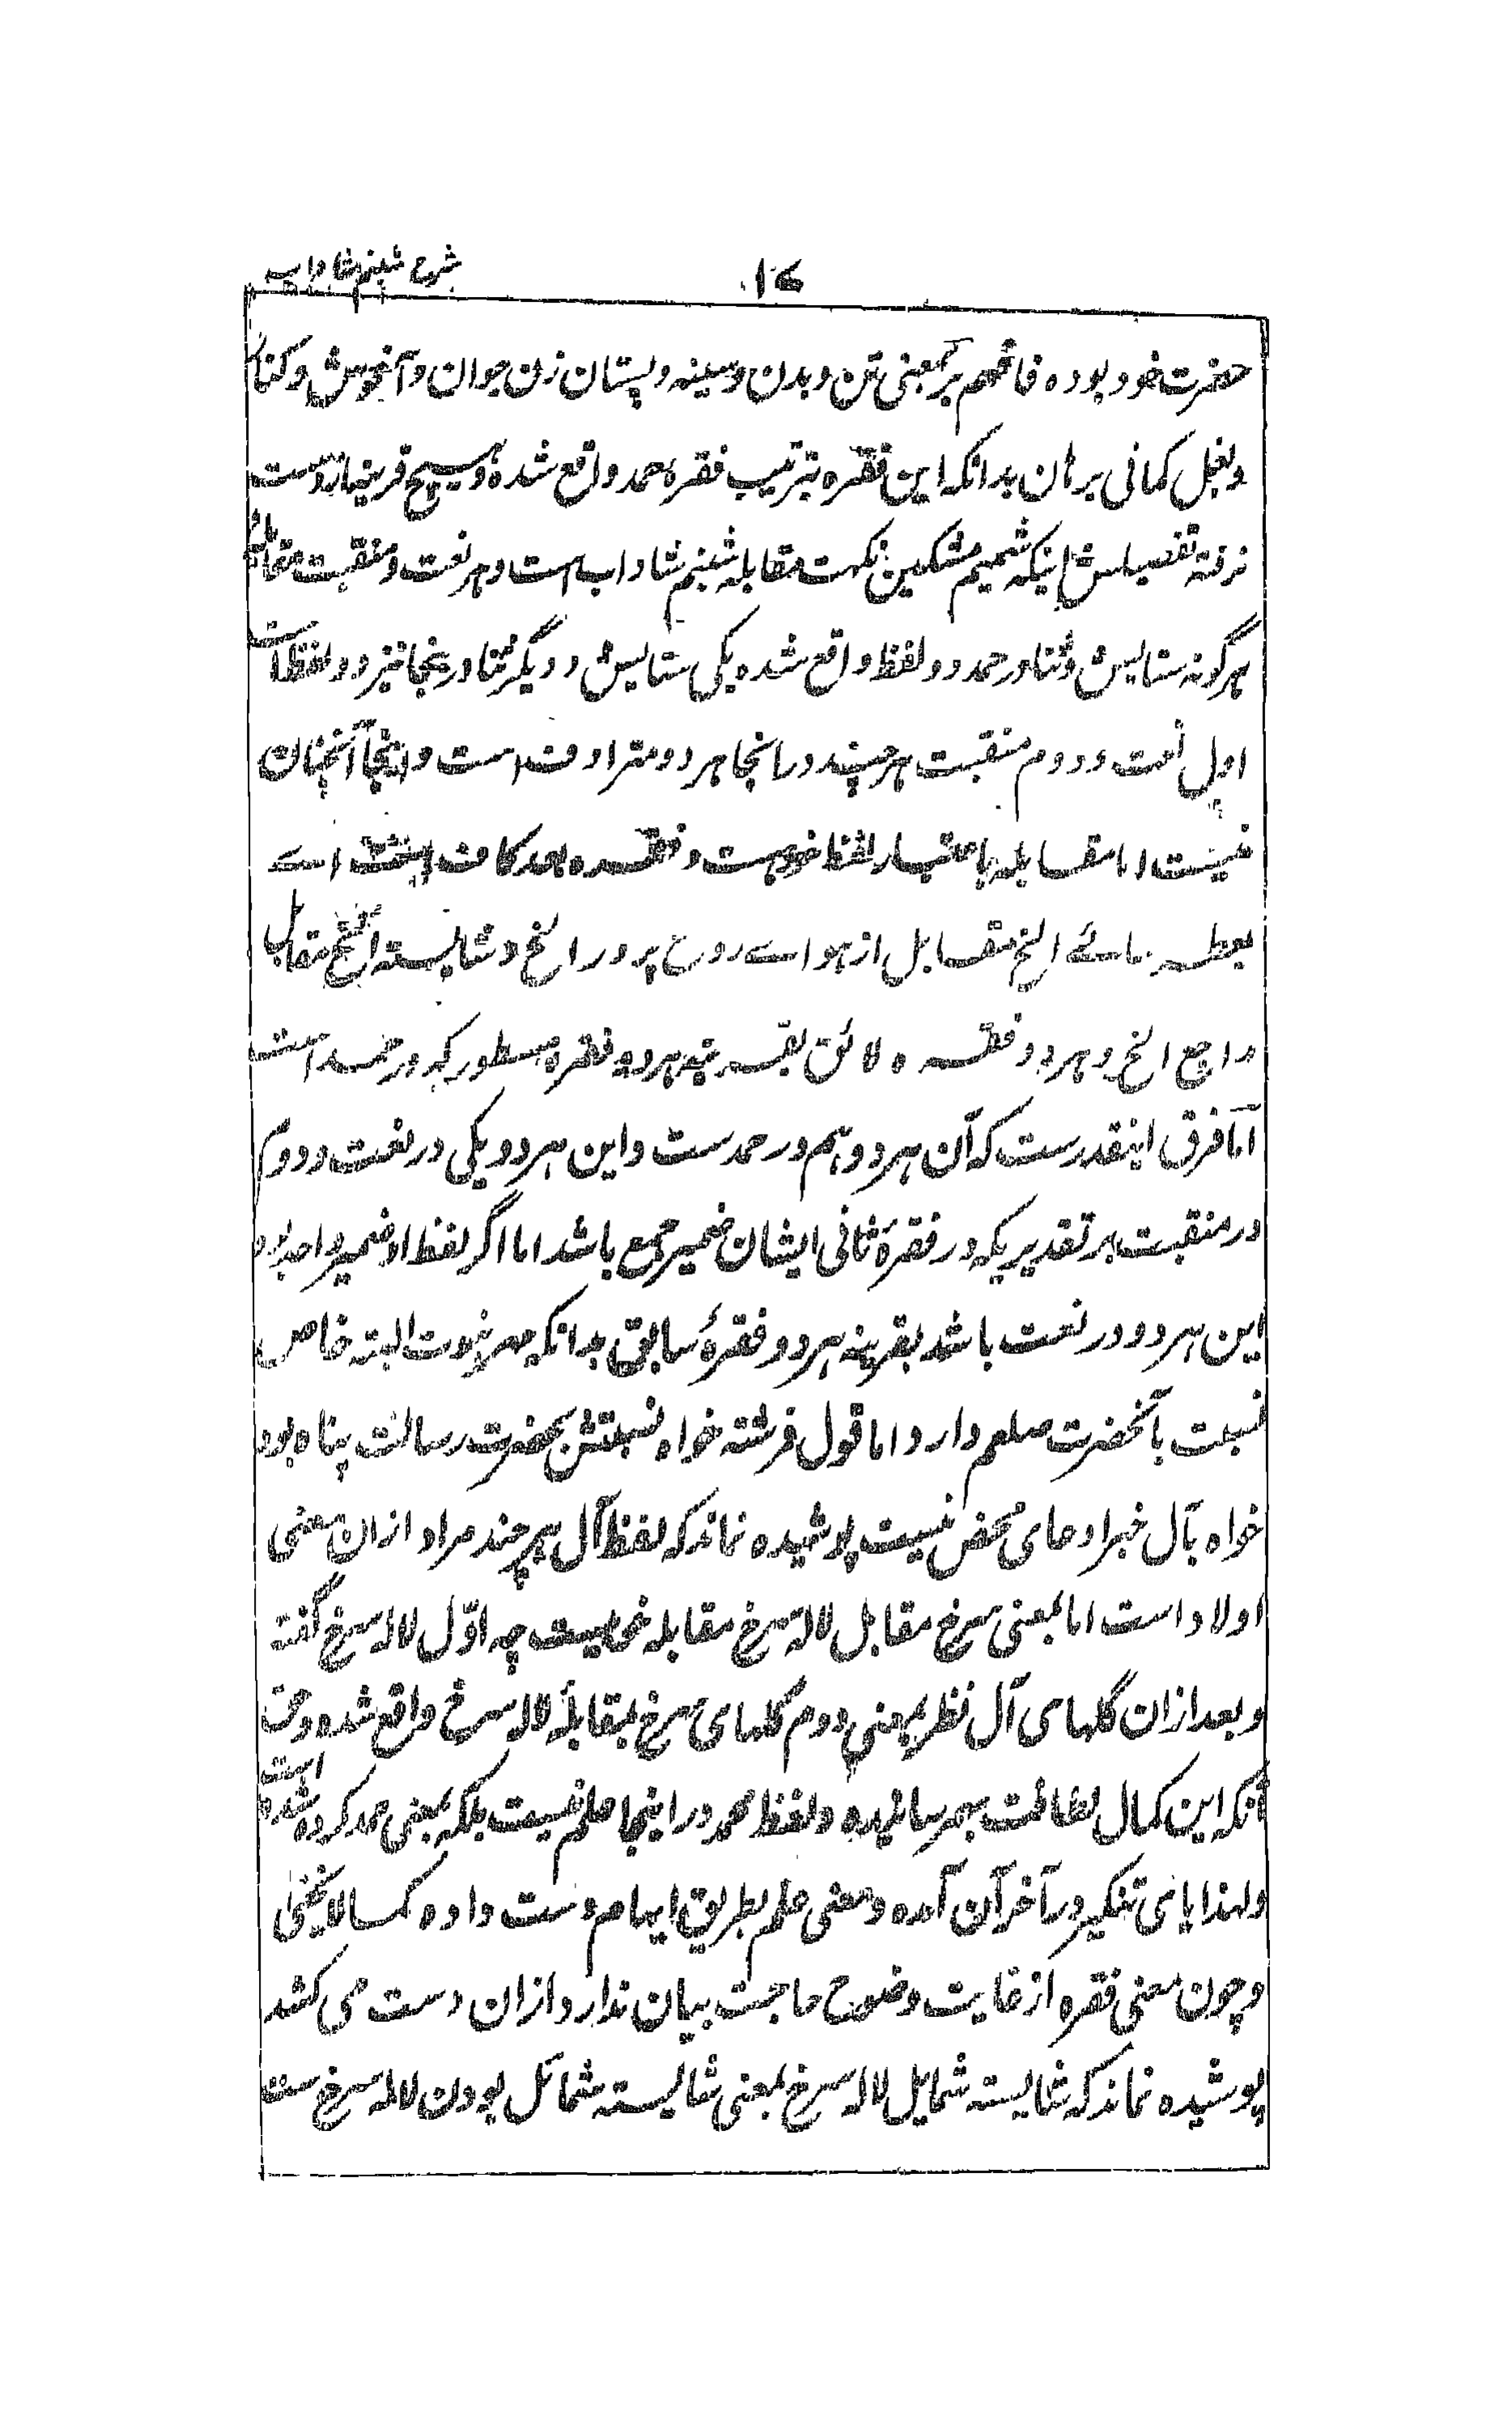 شرح شبنم شاداب
۱۷
حضرت خود بوده فافهم بر بمعنی تن و بدن و سینه و پستان زن جوان و آغوش و کنار
و بغل کمافی برهان بدانکه این فقره بترتیب فقرهٔ حمد واقع شده و هیچ قرینه از دست
نرفته تفصیلش اینکه شمیم مشکین نکهت مقابله شبنم شاداب است و هر نعت و منقبت مقابلهٔ
هرگونه ستایش و ثنا و در حمد دو لفظ واقع شده یکی ستایش و دیگر ثنا و درینجا نیز دو لفظ است
اول نعت و دوم منقبت هرچند در آنجا هر دو مترادف است و اینجا آنچنان
نیست اما مقابله باعتبار لفظ خوبست و فقره بعد کاف اینست اے
بعطر سائے الخ مقابل از هواے روح پرور الخ و شایسته الخ مقابل
راجع الخ و هر دو فقره لائق بقرینه هر دو فقرهٔ مسطور که در حمد است
اما فرق اینقدرست که آن هر دو هم در حمدست و این هر دو یکی در نعت و دوم
در منقبت بر تقدیریکه در فقرهٔ ثانی ایشان ضمیر جمع باشد اما اگر لفظ او ضمیر واحد بود
این هر دو در نعت باشد بقرینه هر دو فقرهٔ سابق بدانکه مهر نبوت البته خاص
نسبت بآنحضرت صلعم دارد اما قول فرشته خواه نسبتش بحضرت رسالت پناه بود
خواه بآل خبر ادعای محض نیست پوشیده نماند که لفظ آل هر چند مراد ازان معنی
اولاد است اما بمعنی سرخ مقابل لالهٔ سرخ مقابله نمانیست چه اوّل لاله سرخ گفته
و بعد ازان گلهای آل نظر بمعنی دوم گلهای سرخ بمقابلهٔ لاله سرخ واقع شده و حق
آنکه این کمال لطافت بهم رسانیده و لفظ محمد در اینجا علم نیست بلکه بمعنی حمد کرده شده است
ولهذا یای تنکیر در آخر آن آمده و معنی علم بطریق ایهام دست داده کما لا یخفی
و چون معنی فقره از غایت وضوح حاجت بیان ندارد ازان دست می کشد
پوشیده نماند که شایسته شمایل لاله سرخ بمعنی شایسته شمائل بودن لاله سرخ ست